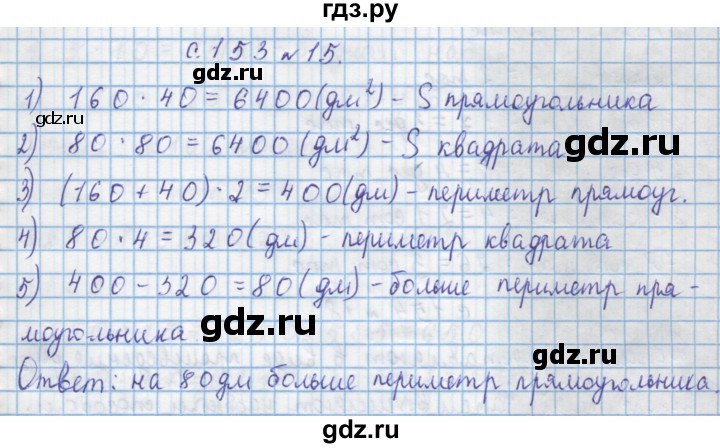 гдз.ру
с. 153 №15.
gdz.ru
1) 160 · 40 = 6400 (дм²) – S прямоугольника
gdz.ru
2) 80 · 80 = 6400 (дм²) – S квадрата
gdz.ru
3) (160 + 40) · 2 = 400 (дм) – периметр прямоуг.
4) 80 · 4 = 320 (дм) – периметр квадрата
5) 400 – 320 = 80 (дм) – больше периметр пря-
моугольника
gdz.ru
Ответ: на 80 дм больше периметр прямоугольника.
gdz.ru